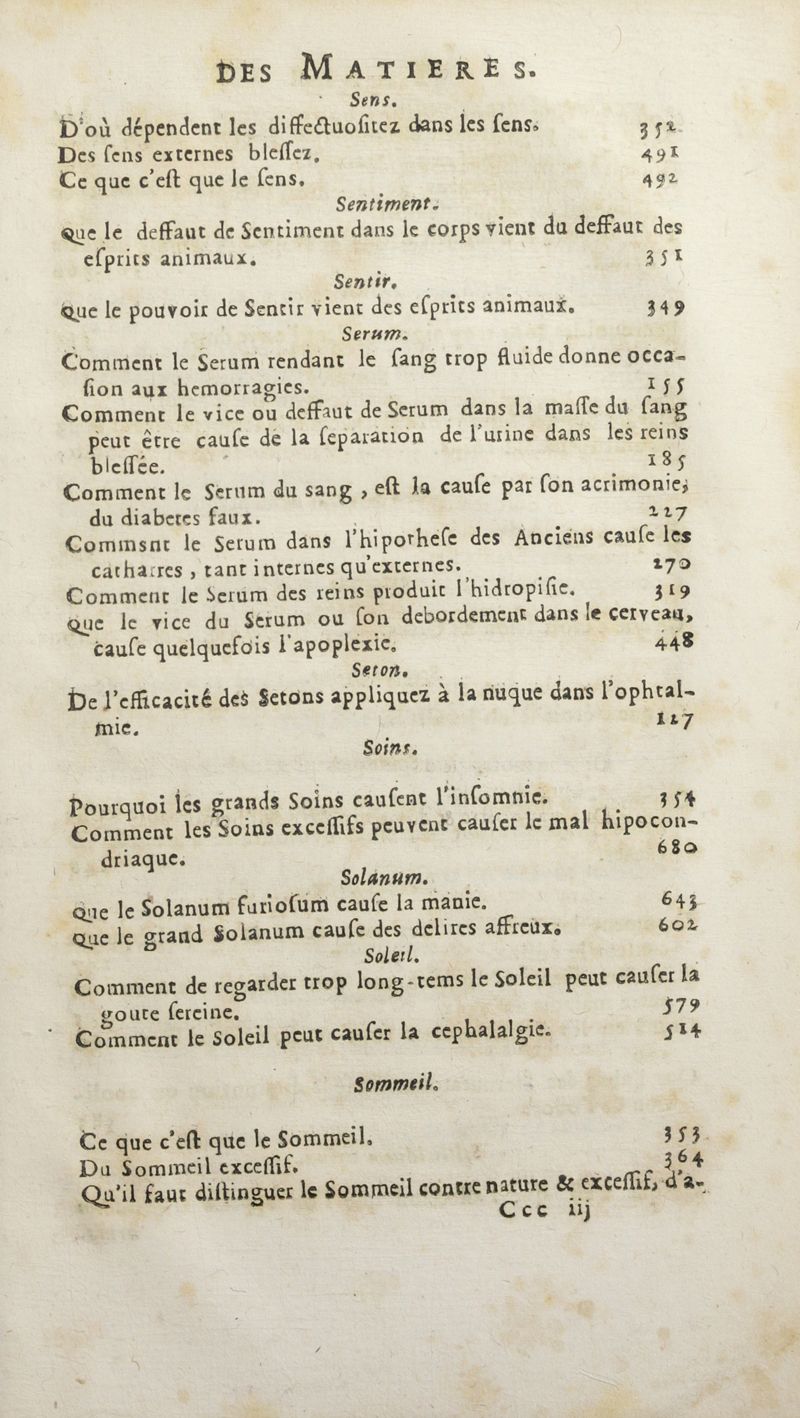 DES MATIERES.
Sens.
D'où dépendent les diffectuositez dans les sens. 352
Des sens externes blessez. 491
Ce que c'est que le sens. 492
Sentiment.
Que le deffaut de Sentiment dans le corps vient du deffaut des
esprits animaux. 351
Sentir.
Que le pouvoir de Sentir vient des esprits animaux. 349
Serum.
Comment le Serum rendant le sang trop fluide donne occa-
sion aux hemorragies. 155
Comment le vice ou deffaut de Serum dans la masse du sang
peut être cause de la separation de l'urine dans les reins
blessée. 185
Comment le Serum du sang, est la cause par son acrimonie,
du diabetes faux. 227
Commsnt le Serum dans l'hipothese des Anciens cause les
catharres, tant internes qu'externes. 270
Comment le Serum des reins produit l'hidropisie. 319
Que le vice du Serum ou son debordement dans le cerveau,
cause quelquefois l'apoplexie. 448
Seton.
De l'efficacité des Setons appliquez à la nuque dans l'ophtal-
mie. 127
Soins.
Pourquoi les grands Soins causent l'insomnie. 354
Comment les Soins excessifs peuvent causer le mal hipocon-
driaque. 680
Solanum.
Que le Solanum furiosum cause la manie. 643
Que le grand Solanum cause des delires affreux. 602
Soleil.
Comment de regarder trop long-tems le Soleil peut causer la
goute sereine. 579
Comment le Soleil peut causer la cephalalgie. 514
Sommeil.
Ce que c'est que le Sommeil. 353
Du Sommeil excessif. 364
Qu'il faut distinguer le Sommeil contre nature & excessif, d'a-
Ccc iij